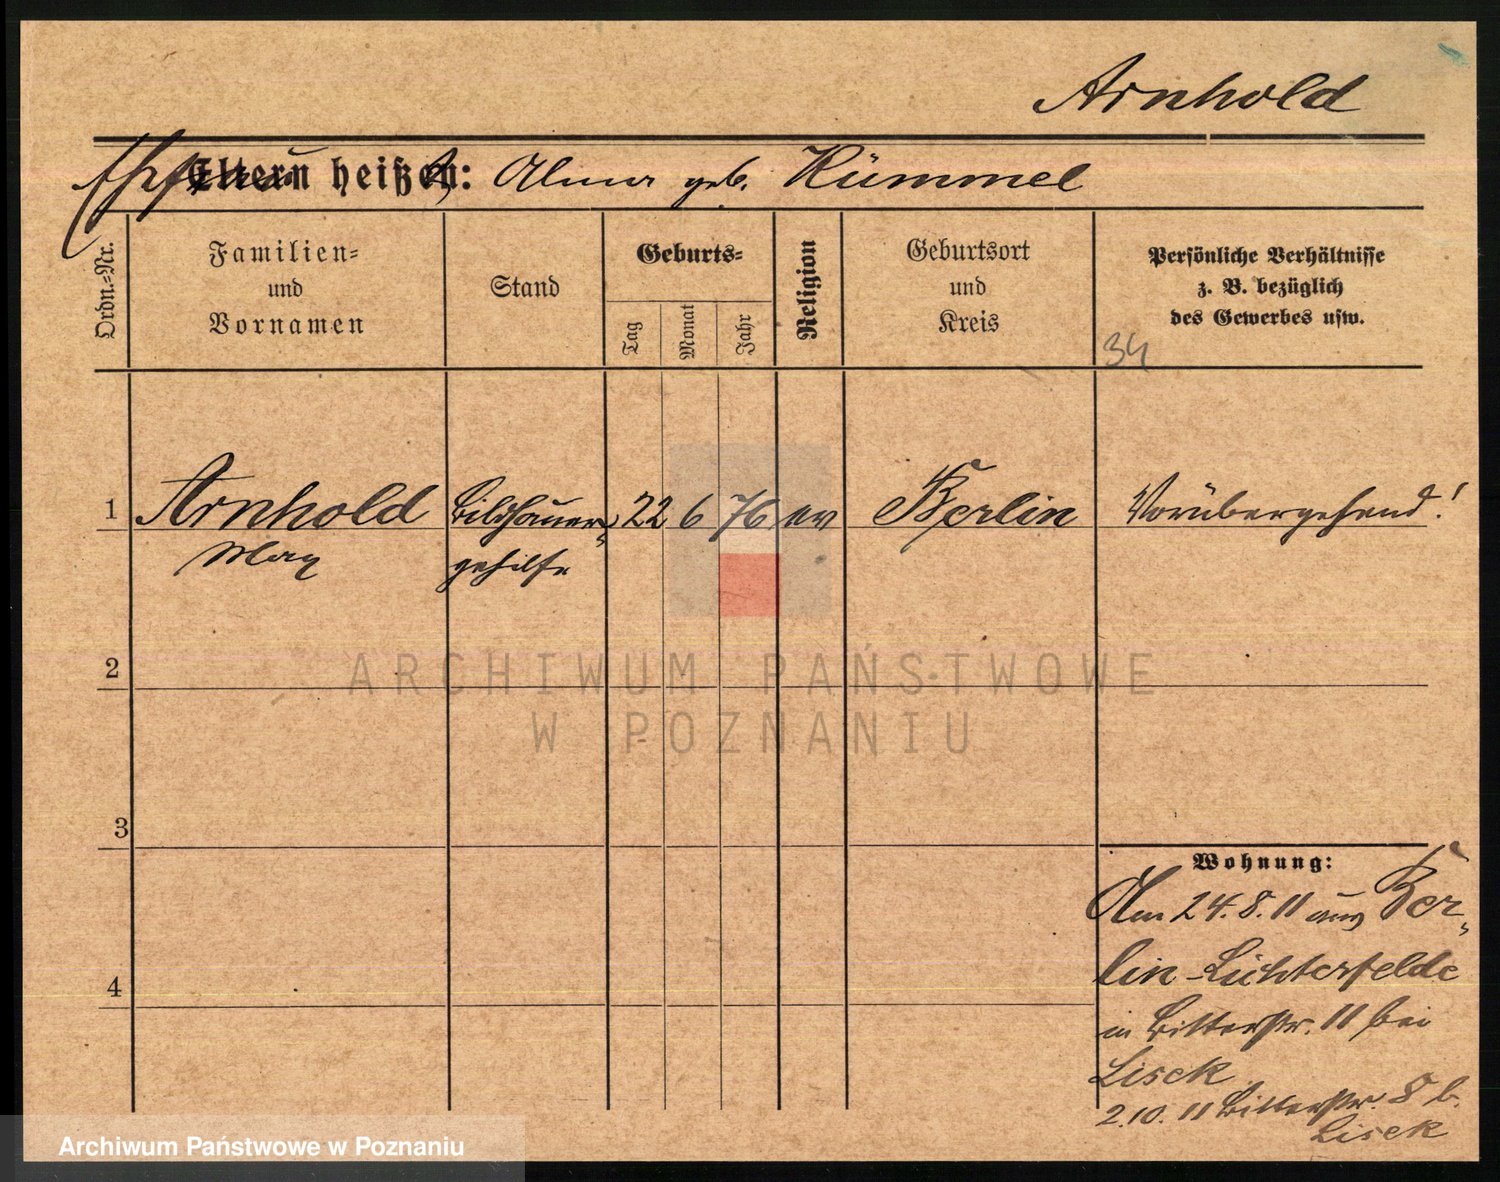 Arnhold
Ehefrau Eltern heißen: Alma geb. Kümmel
Ordn.-Nr.
Familien-
und
Vornamen
Stand
Geburts-
Tag
Monat
Jahr
Religion
Geburtsort
und
Kreis
Persönliche Verhältnisse
z. B. bezüglich
des Gewerbes usw.
34
1 Arnhold Bildhauer- 22 6 76 ev Berlin Vorübergehend!
Max gehilfe
2
ARCHIWUM PAŃSTWOWE
W POZNANIU
3
Wohnung:
Am 24.8.11 aus Ber-
lin-Lichterfelde
in Ritterstr. 11 bei
4
Lisek
2.10.11 Ritterstr. 8 b.
Lisek
Archiwum Państwowe w Poznaniu